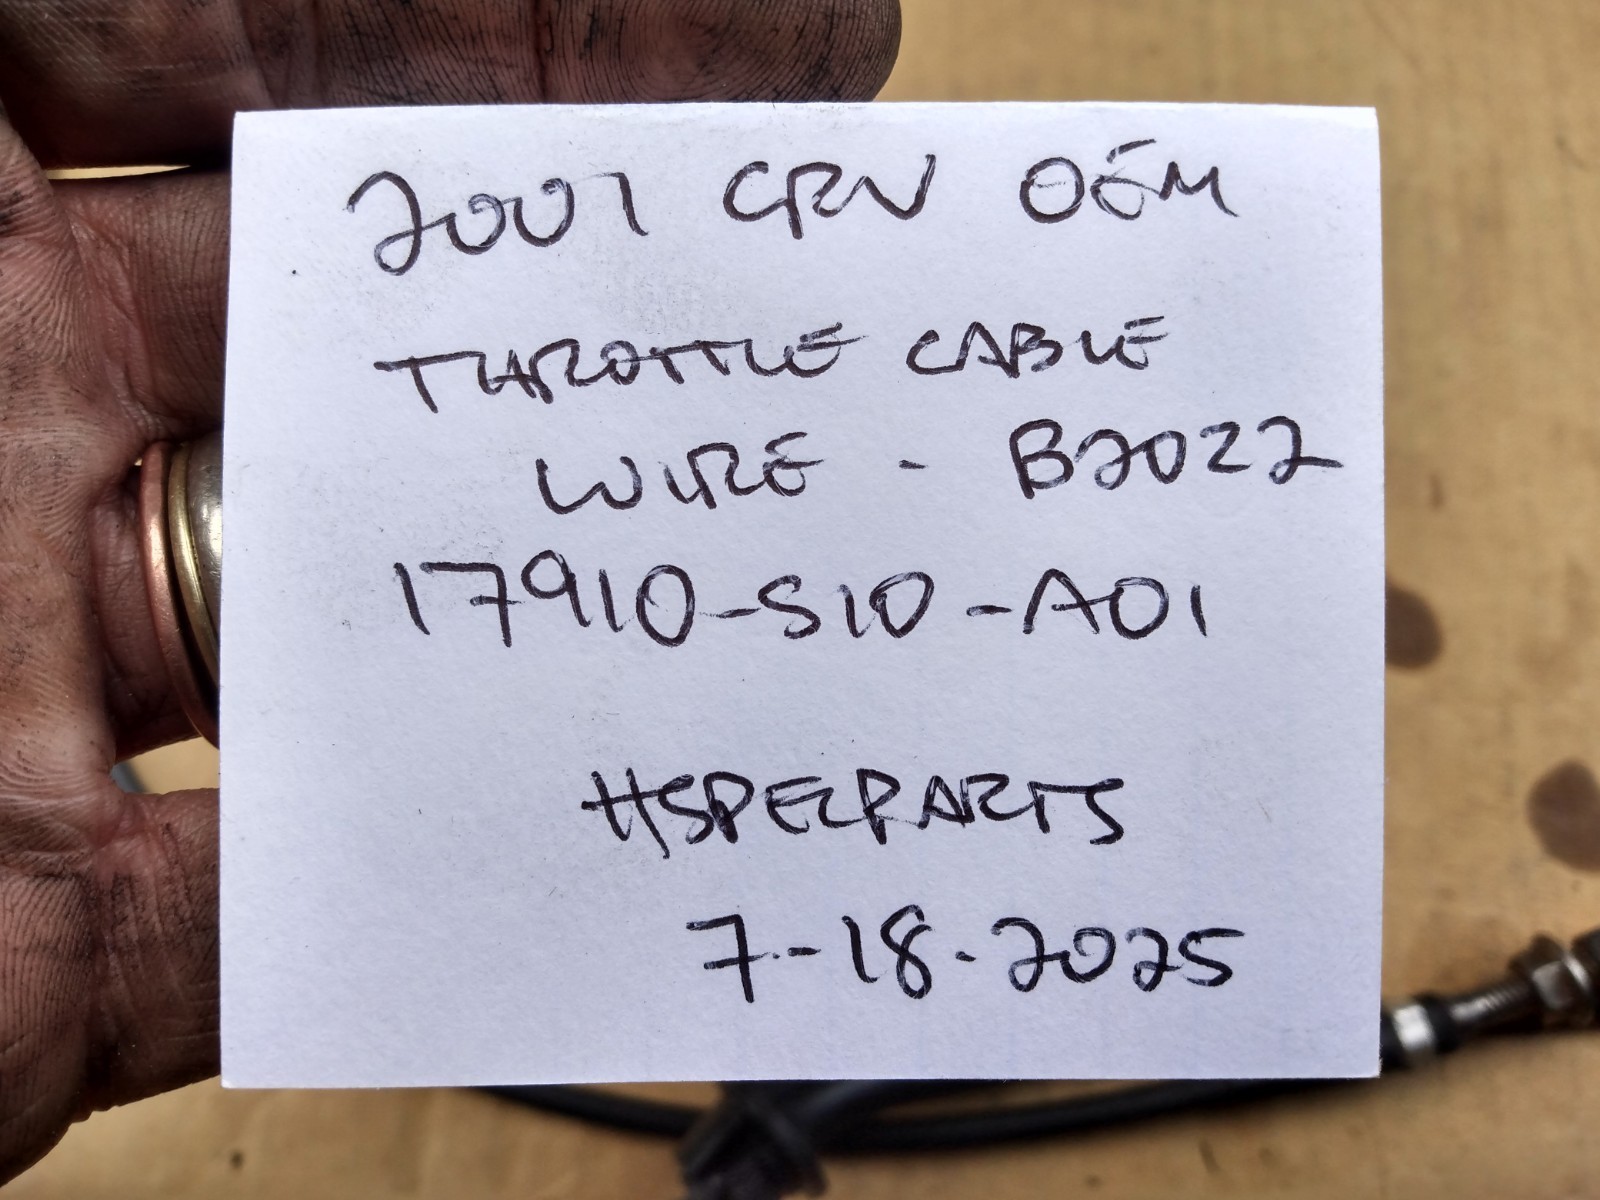 2001 CRV OEM
THROTTLE CABLE
WIRE - B2022
17910-S10-A01
HSPECPARTS
7-18-2025